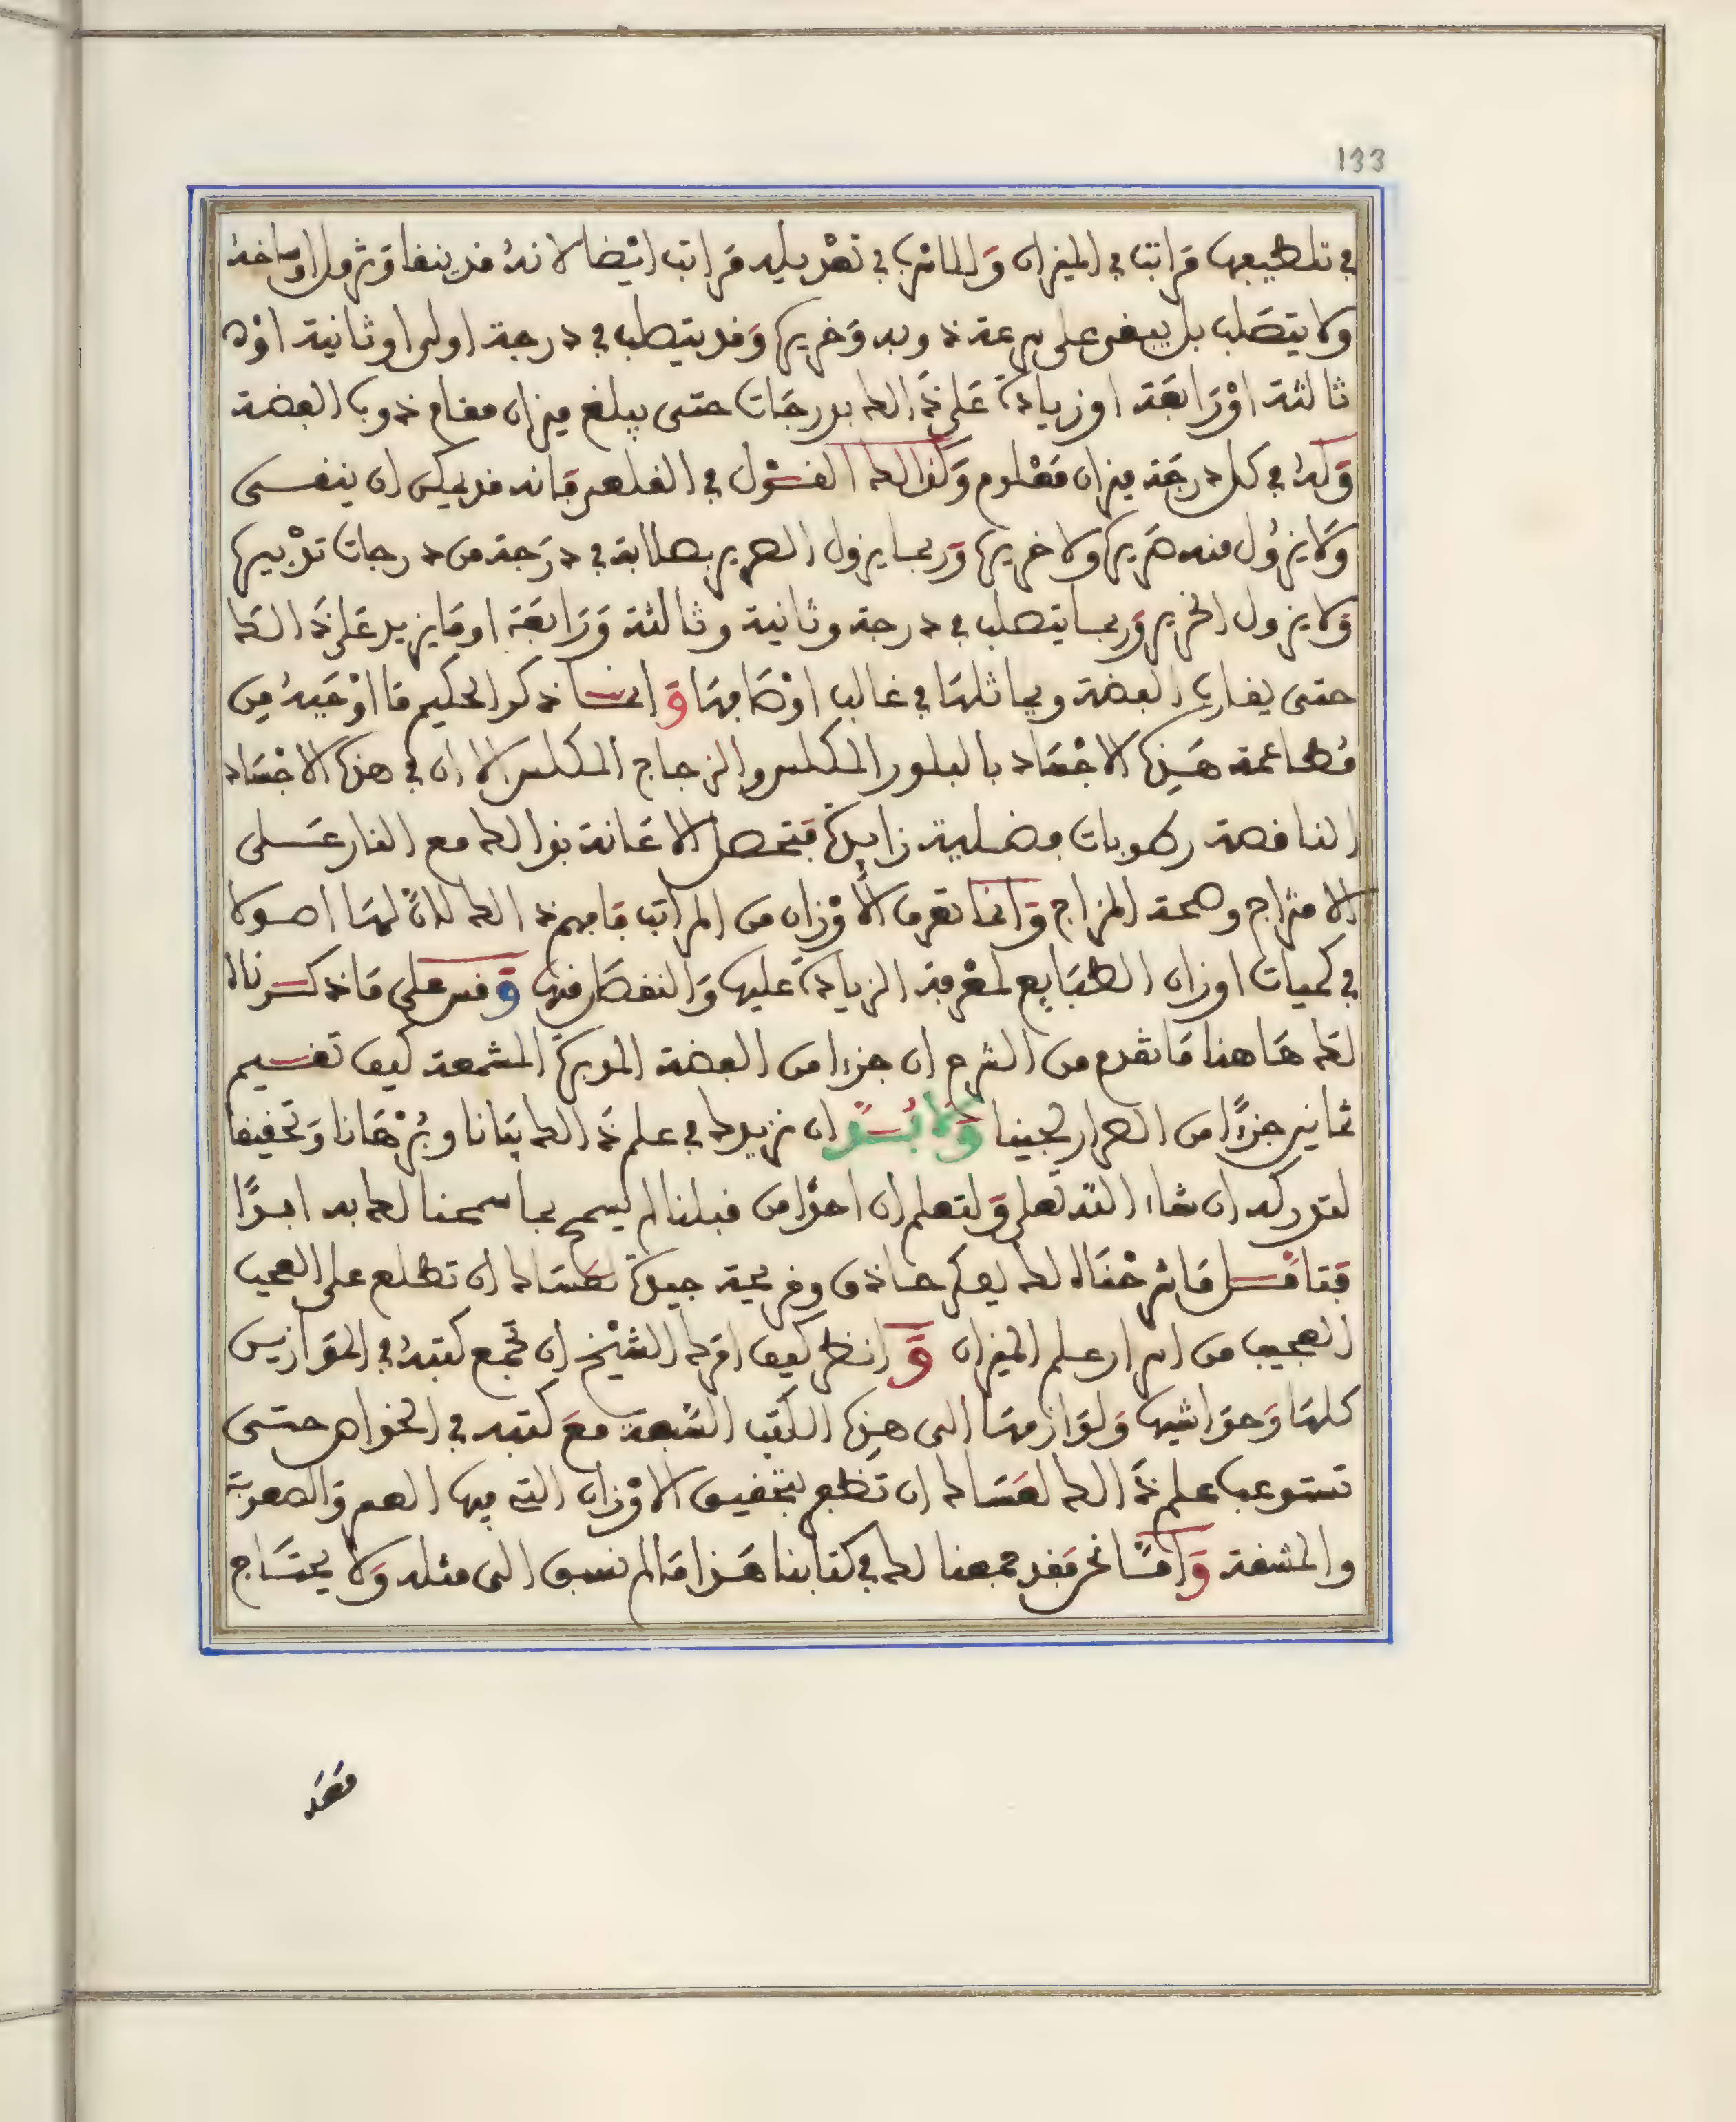 133
في تلطيفها مراتب في الميزان وللمشتري في تعديله مراتب ايضا لانه قد ينقا وتزول اوساخه
ولا يتصلب بل يبقى على سرعة ذوبه وخريره وقد يتصلب في درجة اولى او ثانية او
ثالثة او رابعة او زيادة على ذالك بدرجات حتى يبلغ ميزان مقام ذوب الفضة
وله في كل درجة ميزان معلوم وكذالك القول في القلعي فانه قد يمكن ان ينقى
ولا يزول منه صريره ولا خريره وربما يزول الصرير بصلابة في درجة من درجات تدبيره
ولا يزول الخرير وربما يتصلب في درجة وثانية وثالثة ورابعة او ما يزيد على ذالك
حتى يقارب الفضة ويماثلها في غالب اوصافها وانما ذكر الحكيم ما اوجبه من
مطاعمة هذه الاجساد بالبلور المكلس والزجاج المكلس الا ان في هذه الاجساد
الناقصة رطوبات فضلية زايدة فتحصل الاعانة بذالك مع النار على
الامتزاج وصحة المزاج وانما تعرف الاوزان من المراتب فافهم ذالك لان لها اصولا
في كميات اوزان الطبايع لمعرفة الزيادة عليها والنقصان منها وقس على ما ذكرناه
لك هاهنا ما تقدم من الشرح ان جزءا من الفضة المدبرة المشمعة كيف تقسيم
ثمانين جزءا من الصرار لجينا ولا بد ان نزيدك في علم ذالك بيانا وبرهانا وتحقيقا
لتدركه ان شاء الله تعلى ولتعلم ان احدا من قبلنا لم يسمح بما سمحنا لك به ابدا
فتامل ما شرحناه لك بفكر حاذق وقريحة جيدة لعساك ان تطلع على العجب
العجيب من اسرار علم الميزان وانظر كيف امرك الشيخ ان تجمع كتبه في الموازين
كلها وحواشيها ولوازمها الى هذه الكتب السبعة مع كتبه في الخواص حتى
تستوعب علم ذالك لعساك ان تظفر بتحقيق الاوزان التي فيها العسر والصعوبة
والمشقة واما نحن فقد جمعنا لك في كتابنا هذا ما لم نسبق الى مثله ولا يحتاج
معه